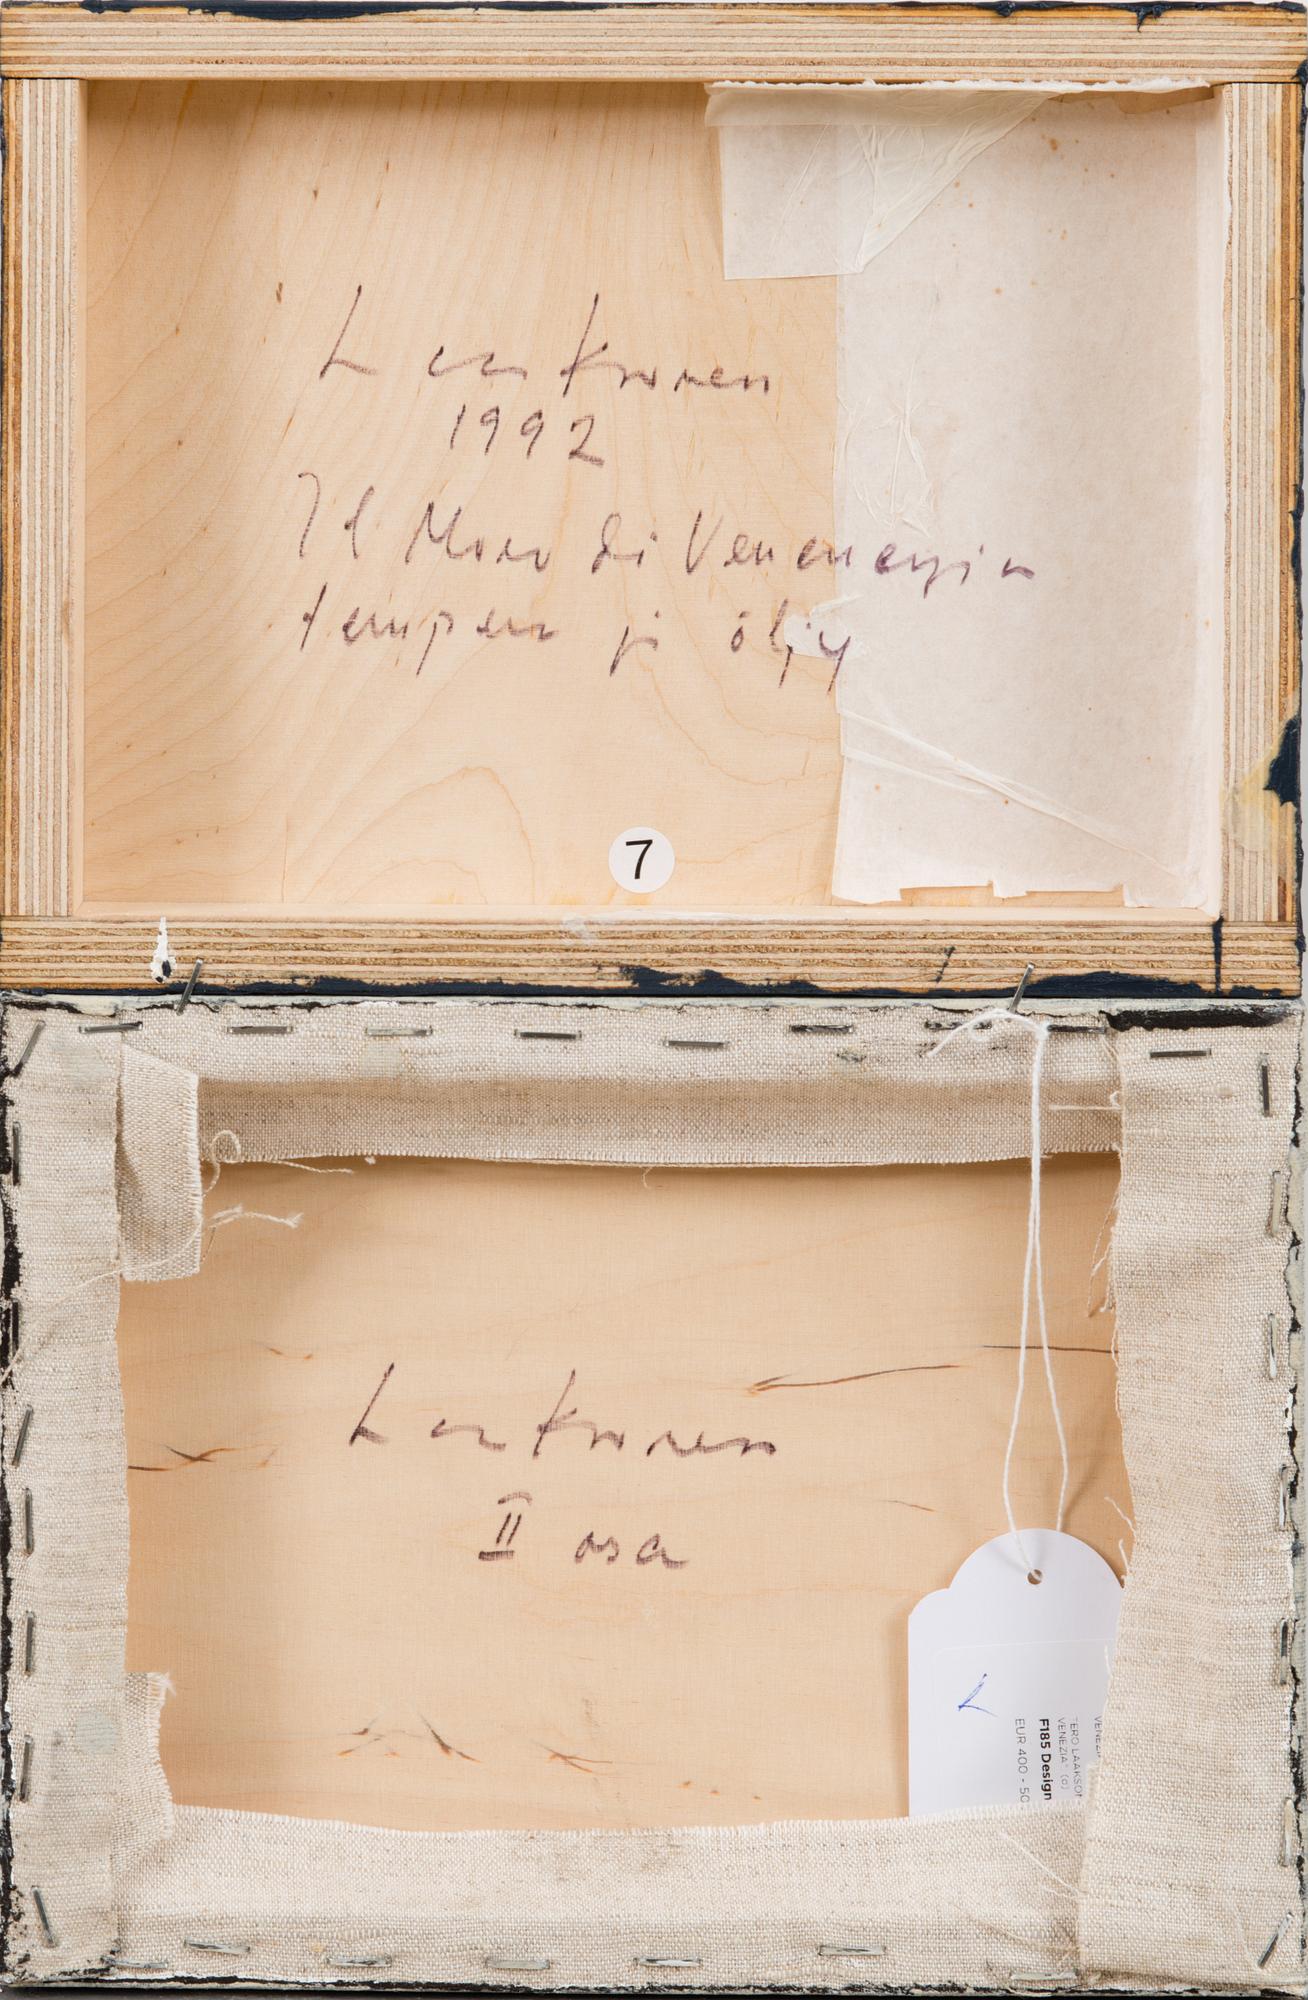 Laaksonen
1992
Il Moro di Venenezia
tempera ja öljy
7
Laaksonen
II osa
TERO LAAKSON
VENEZIA" (d)
F185 Design
EUR 400 - 50